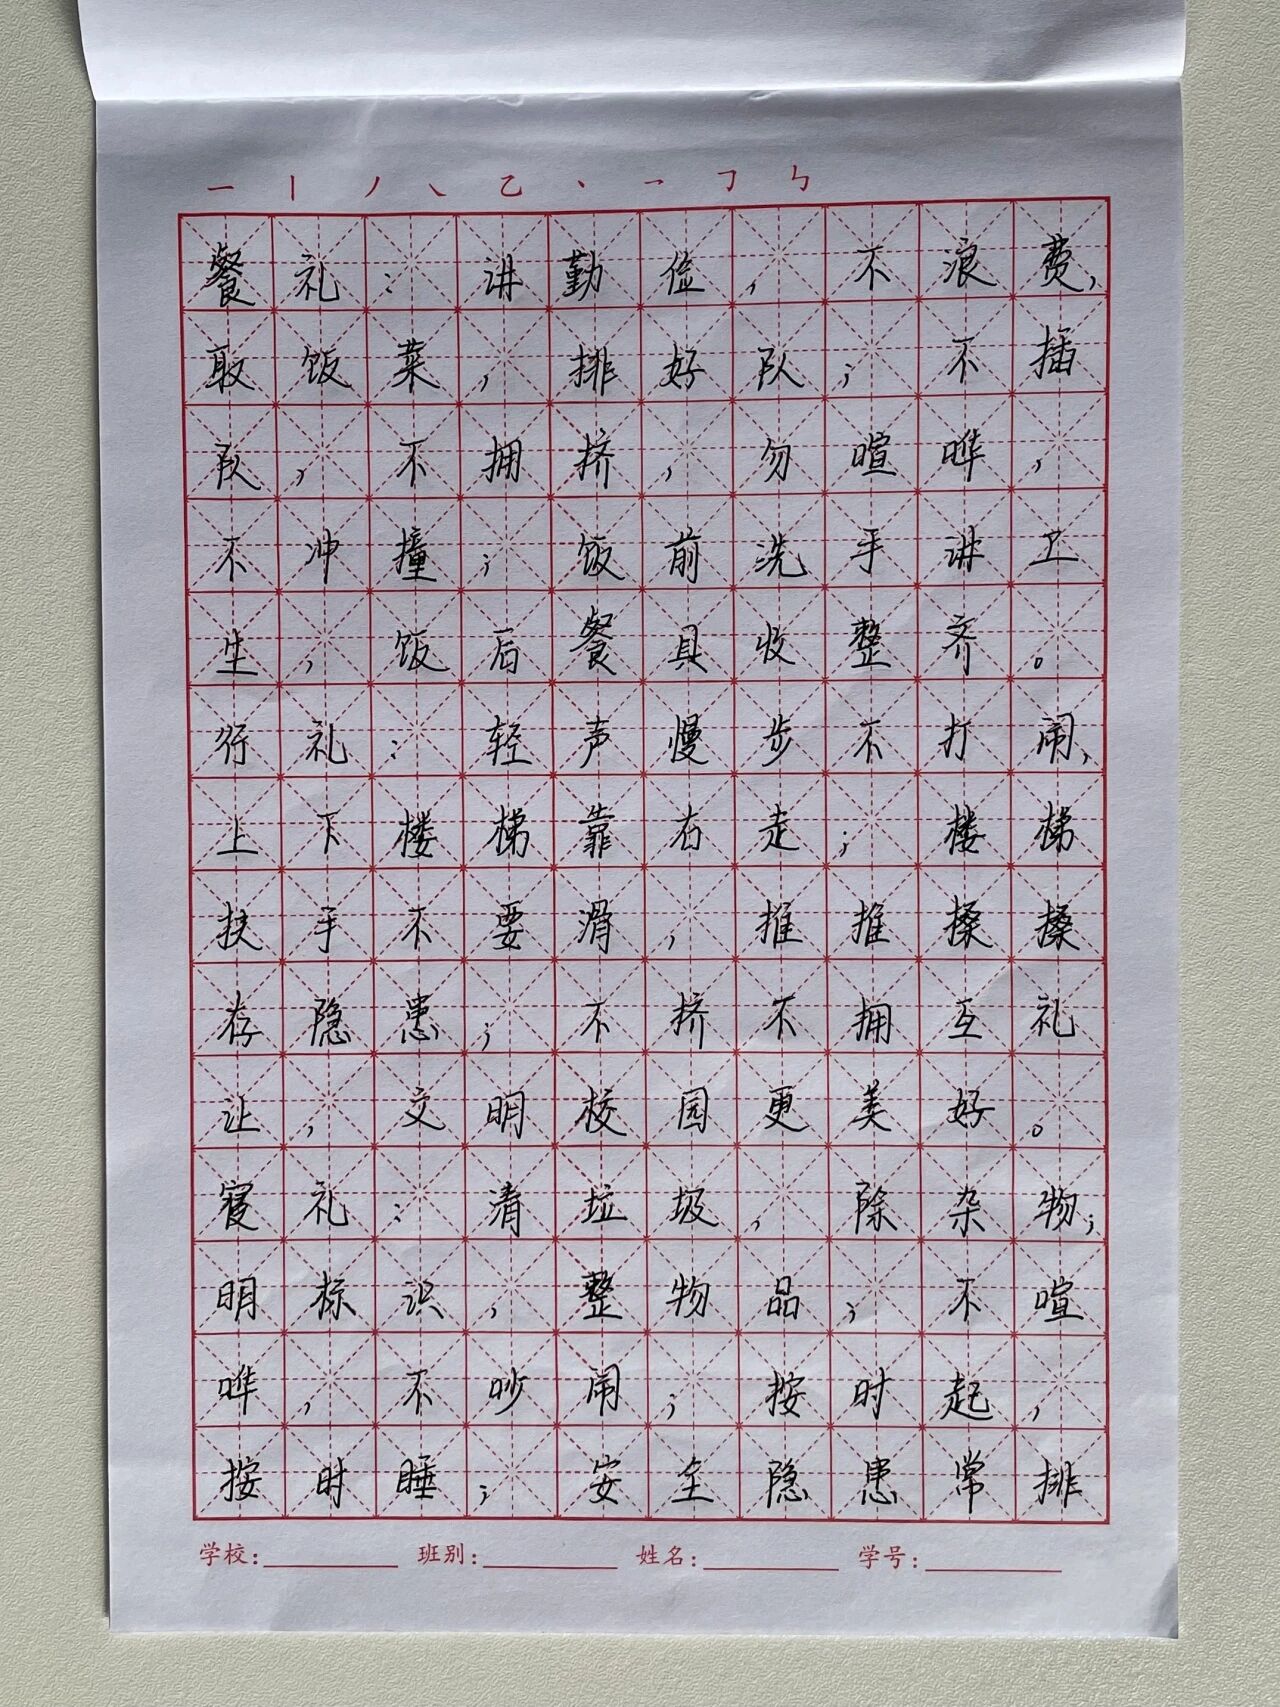 一丨丿㇏乙丶乛㇆ㄣ
餐礼：讲勤俭，不浪费，
取饭菜，排好队；不插
队，不拥挤，勿喧哗，
不冲撞；饭前洗手讲卫
生，饭后餐具收整齐。
行礼：轻声慢步不打闹，
上下楼梯靠右走；楼梯
扶手不要滑，推推搡搡
存隐患；不挤不拥互礼
让，文明校园更美好。
寝礼：清垃圾，除杂物；
明标识，整物品；不喧
哗，不吵闹；按时起，
按时睡；安全隐患常排
学校：班别：姓名：学号：